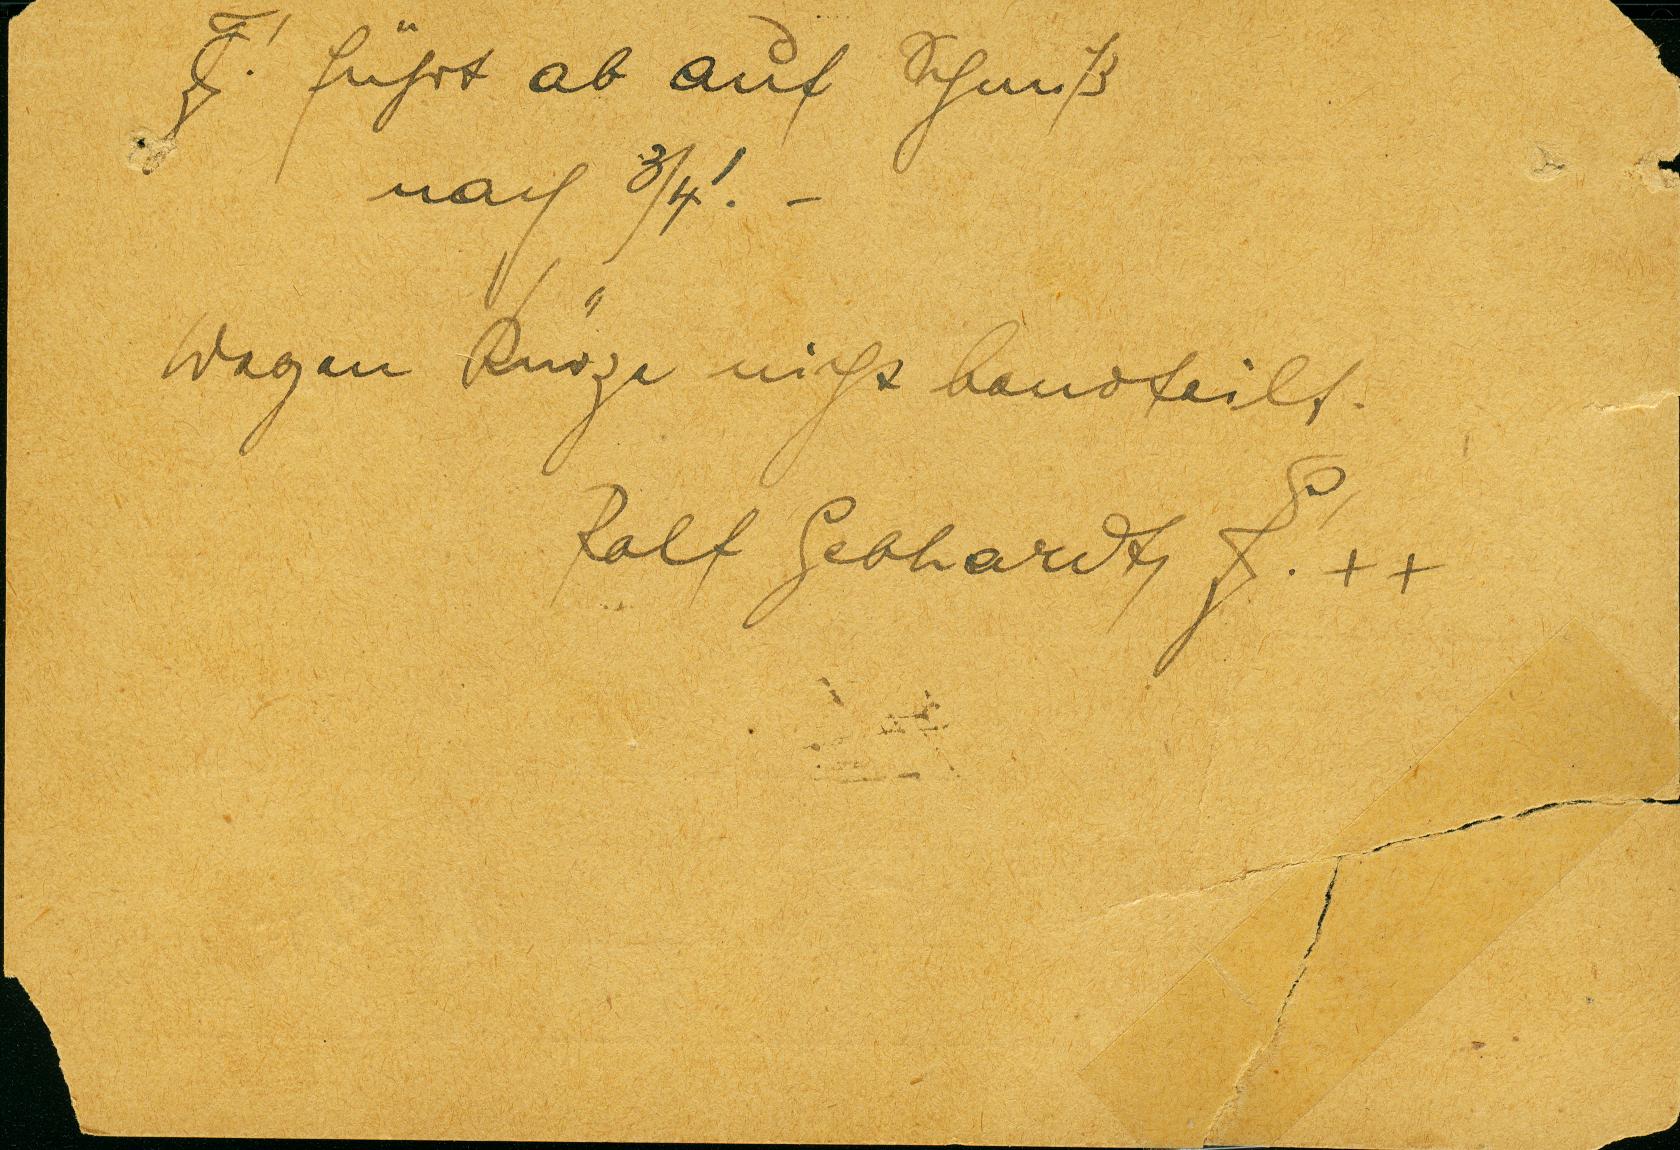 F.! führt ab auf Schmiß
nach 3/4!. –
Wegen Kürze nicht beurteilt.
Rolf Gebhardt F. ++